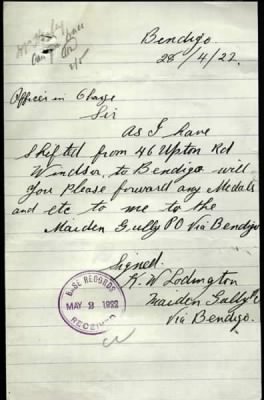 Bendigo
28/4/22
Officer in Charge
Sir
As I have
Shifted from 46 Upton Rd
Windsor, to Bendigo will
you Please forward any Medals
and etc to me to the
Maiden Gully PO via Bendigo
Signed.
W Lodington
Maiden Gully
Via Bendigo.
BASE RECORDS
MAY 2 1922
RECEIVED